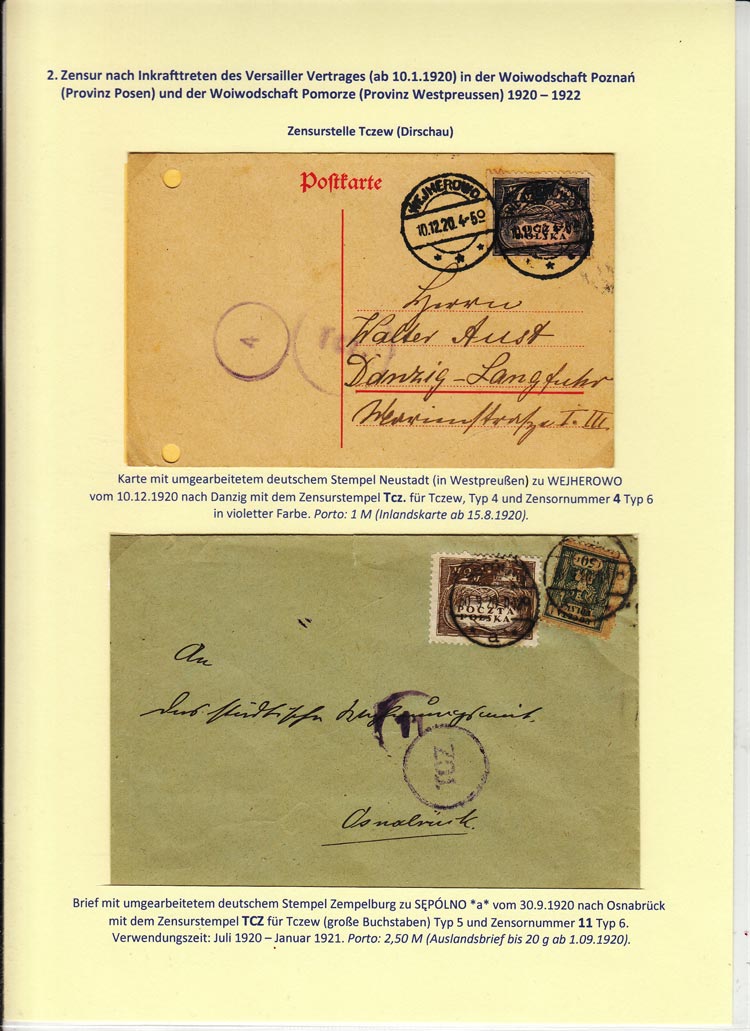 2. Zensur nach Inkrafttreten des Versailler Vertrages (ab 10.1.1920) in der Woiwodschaft Poznań
(Provinz Posen) und der Woiwodschaft Pomorze (Provinz Westpreussen) 1920 – 1922
Zensurstelle Tczew (Dirschau)
Postkarte
WEJHEROWO
10.12.20. 4-50
POCZTA
POLSKA
4
Tcz.
Herrn
Walter Aust
Danzig-Langfuhr
Marienstraße I. III
Karte mit umgearbeitetem deutschem Stempel Neustadt (in Westpreußen) zu WEJHEROWO
vom 10.12.1920 nach Danzig mit dem Zensurstempel Tcz. für Tczew, Typ 4 und Zensornummer 4 Typ 6
in violetter Farbe. Porto: 1 M (Inlandskarte ab 15.8.1920).
POCZTA
POLSKA
a
An
das städtische
11
TCZ
Osnabrück.
Brief mit umgearbeitetem deutschem Stempel Zempelburg zu SĘPÓLNO *a* vom 30.9.1920 nach Osnabrück
mit dem Zensurstempel TCZ für Tczew (große Buchstaben) Typ 5 und Zensornummer 11 Typ 6.
Verwendungszeit: Juli 1920 – Januar 1921. Porto: 2,50 M (Auslandsbrief bis 20 g ab 1.09.1920).